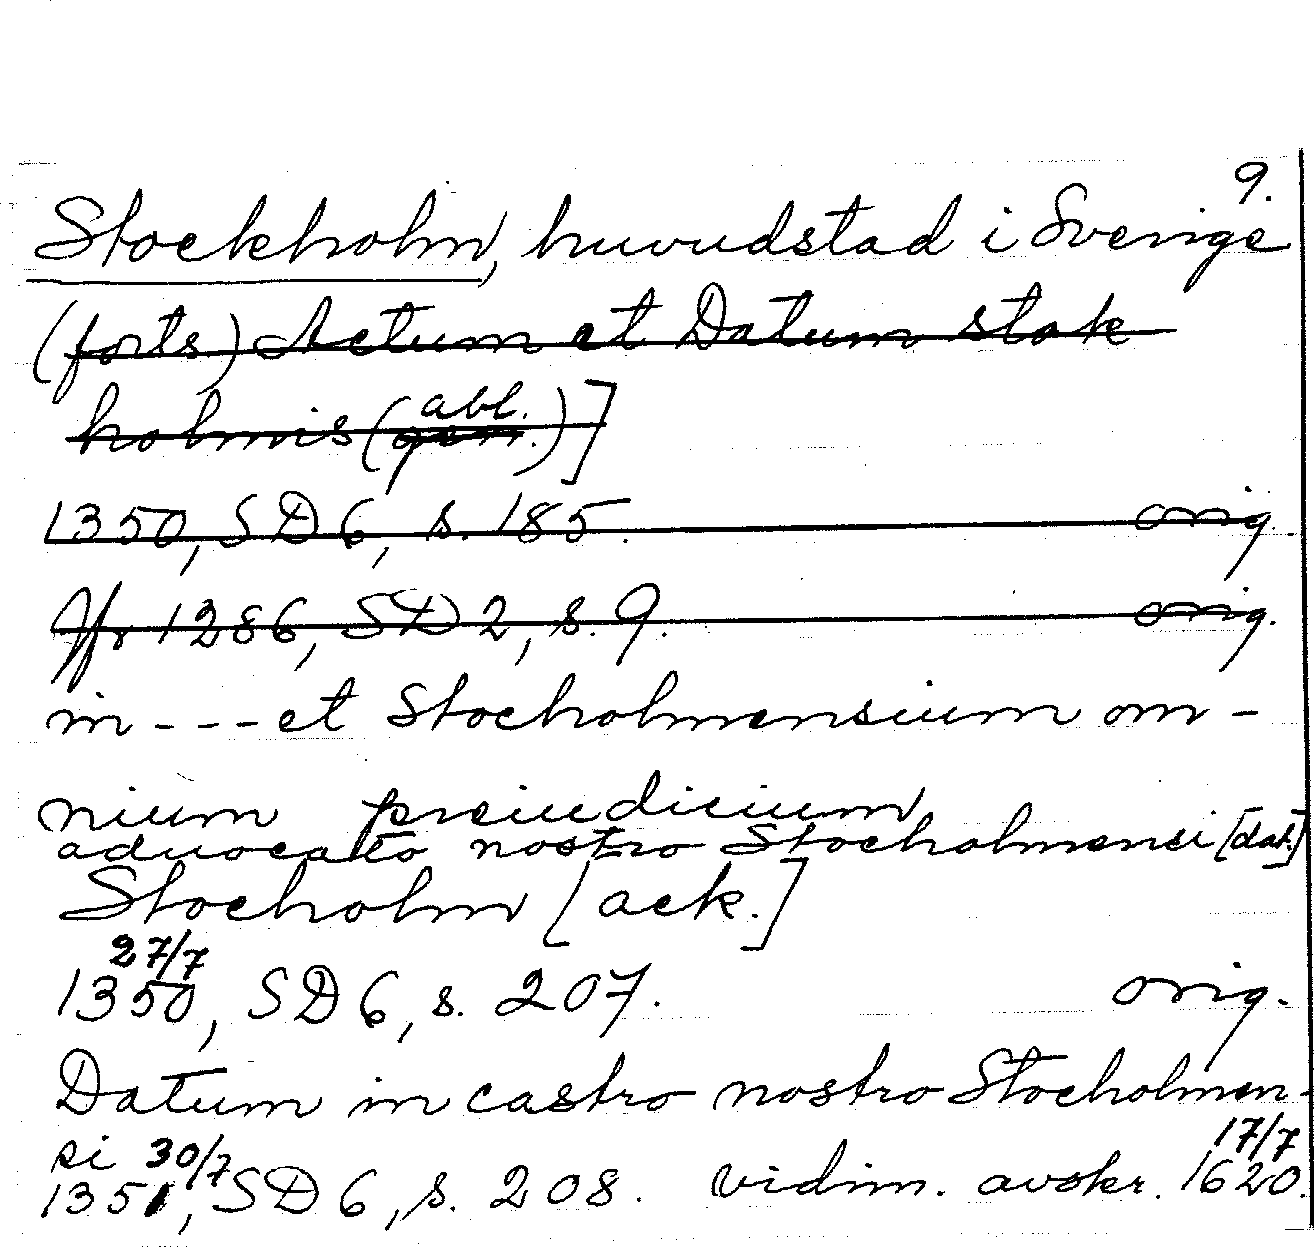 9.
Stockholm, huvudstad i Sverige
(forts) Actum et Datum stok
holmis (abl.
gen.)]
1350, SD 6, s. 185. orig.
Jfr 1286, SD 2, s. 9. orig.
in - - - et Stocholmensium om-
nium preiudicium
aduocato nostro Stocholmensi [dat.]
Stocholm [ack.]
27/7
1350, SD 6, s. 207. orig.
Datum in castro nostro Stocholmen-
si 30/7 17/7
1351, SD 6, s. 208. vidim. avskr. 1620.